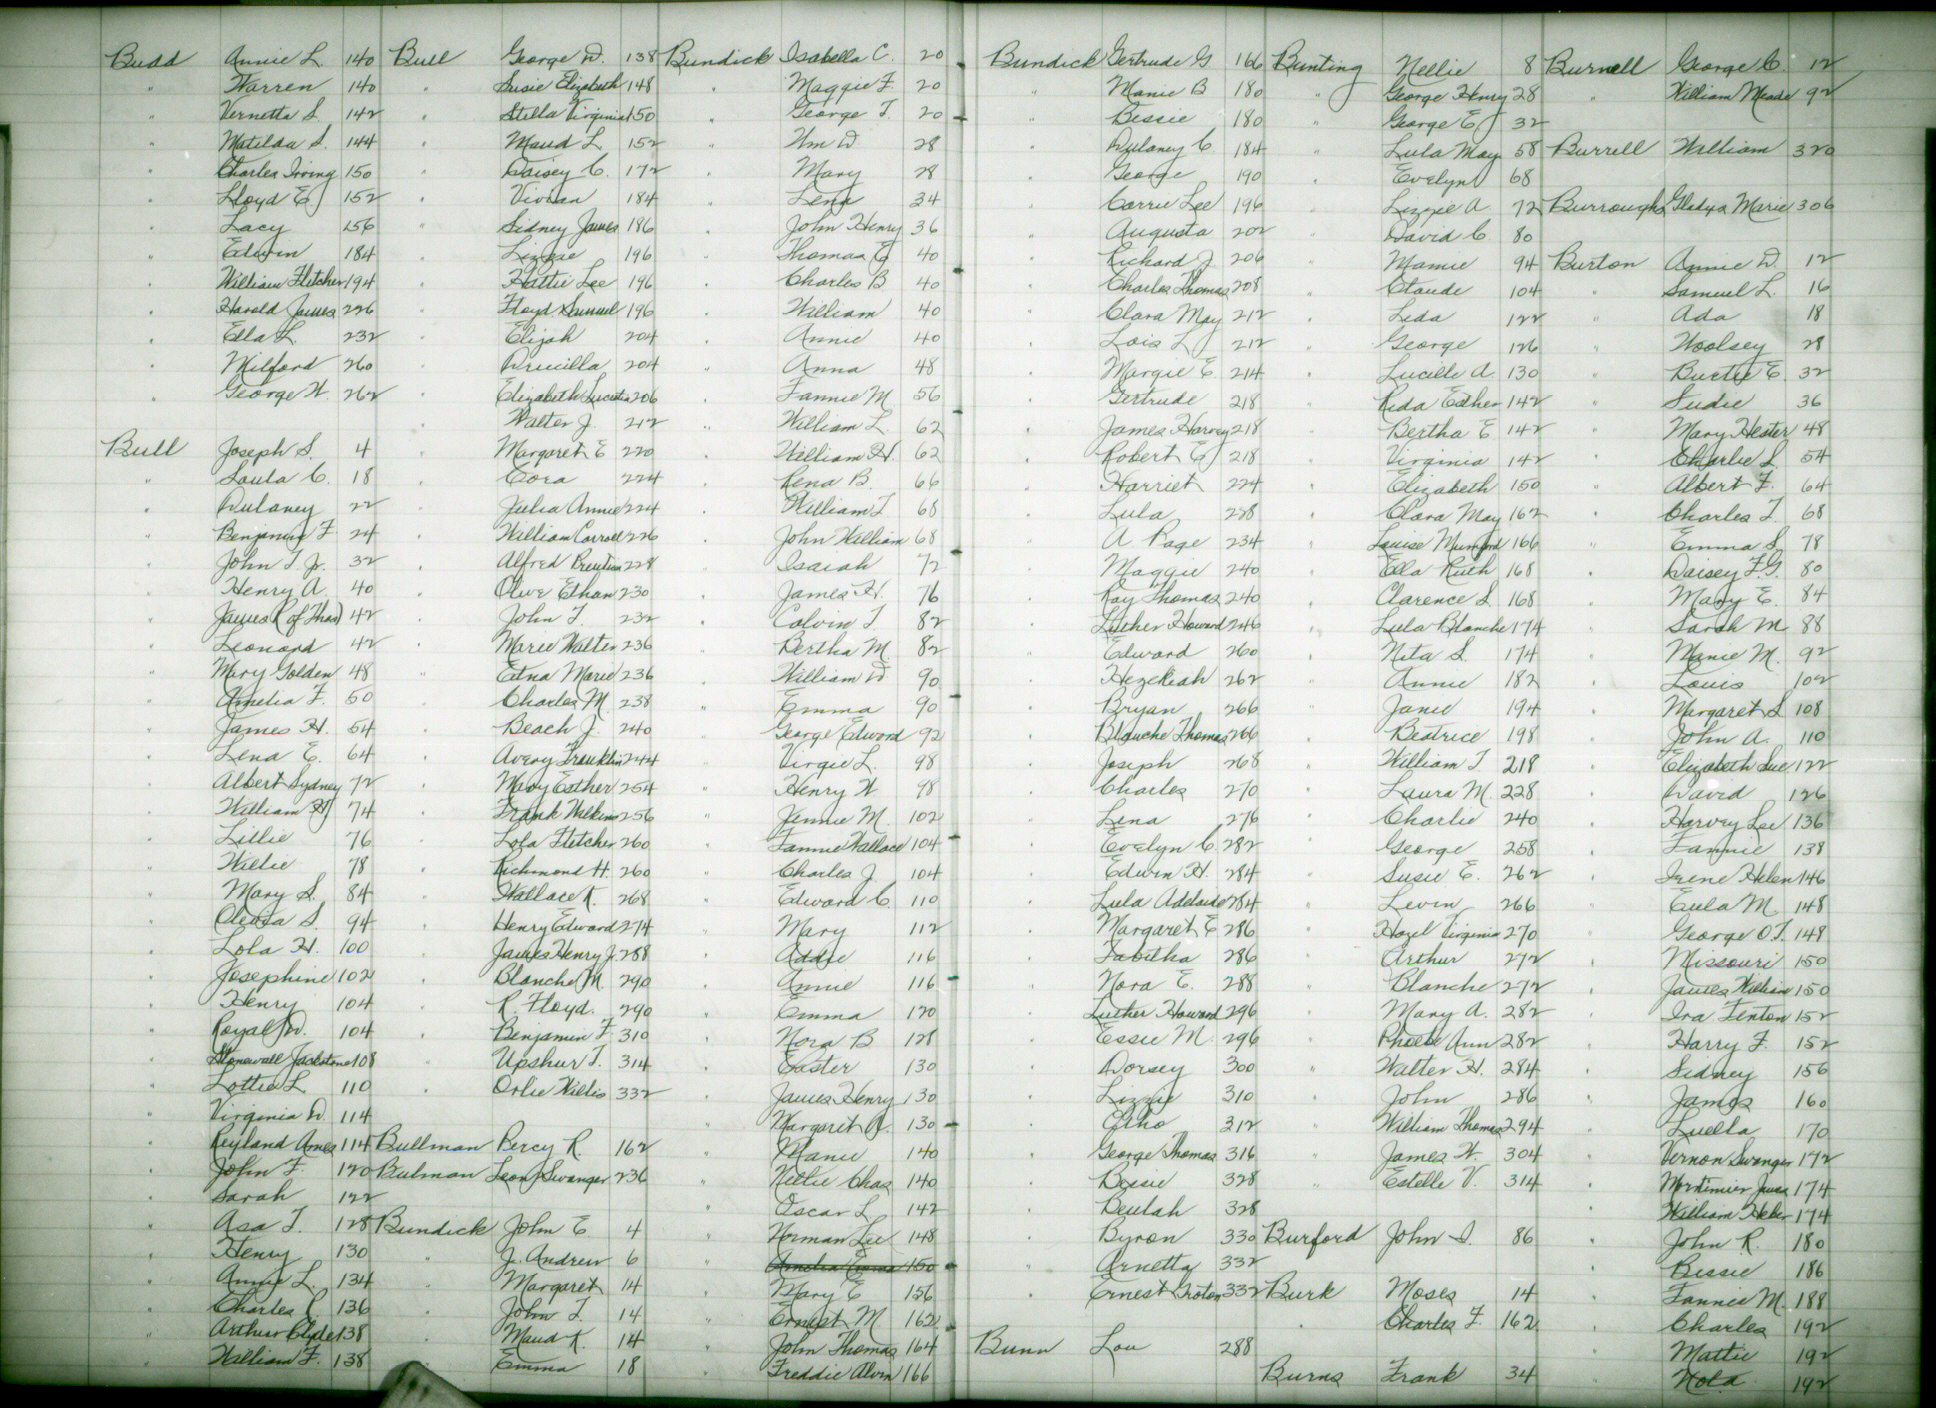 Budd Annie L. 140
" Warren 140
" Vernetta S. 142
" Matilda S. 144
" Charles Irving 150
" Lloyd E. 152
" Lacy 156
" Edwin 184
" William Fletcher 194
" Harold James 226
" Ella L. 232
" Milford 260
" George W. 262
Bull Joseph S. 4
" Loula C. 18
" Dulaney 22
" Benjamin F. 24
" John T. Jr. 32
" Henry A. 40
" James R (of Thos) 42
" Leonard 42
" Mary Golden 48
" Amelia F. 50
" James H. 54
" Lena E. 64
" Albert Sydney 72
" William H. 74
" Lillie 76
" Willie 78
" Mary S. 84
" Olevia S. 94
" Lola H. 100
" Josephine 102
" Henry 104
" Royal W. 104
" Stonewall Jackstone 108
" Lottie L. 110
" Virginia D. 114
" Leyland Ames 114
" John F. 120
" Sarah 122
" Asa T. 128
" Henry 130
" Annie L. 134
" Charles R. 136
" Arthur Clyde 138
" William F. 138
Bull George D. 138
" Susie Elizabeth 148
" Stella Virginia 150
" Maud L. 152
" Daisey C. 172
" Vivian 184
" Sidney James 186
" Lizzie 196
" Hattie Lee 196
" Floyd Samuel 196
" Elijah 204
" Drucilla 204
" Elizabeth Lucretia 206
" Walter J. 212
" Margaret E 220
" Cora 224
" Julia Annie 224
" William Carroll 226
" Alfred 228
" Olive Ethan 230
" John T. 232
" Marie Walter 236
" Edna Marie 236
" Charles M. 238
" Beach J. 240
" Avery Franklin 244
" Mary Esther 254
" Frank Wilkins 256
" Lola Fletcher 260
" Richmond H. 260
" Wallace R. 268
" Henry Edward 274
" James Henry J. 288
" Blanche M. 290
" R. Floyd. 290
" Benjamin F. 310
" Upshur T. 314
" Orlie Willis 332
Bullman Percy R. 162
Bulman Leon Swanger 236
Bundick John E. 4
" J. Andrew 6
" Margaret 14
" John T. 14
" Maud K. 14
" Emma 18
Bundick Isabella C. 20
" Maggie F. 20
" George T. 20
" Wm D. 28
" Mary 28
" Lena 34
" John Henry 36
" Thomas E 40
" Charles B 40
" William 40
" Annie 40
" Anna 48
" Fannie M 56
" William L. 62
" William H. 62
" Lena B. 66
" William T 68
" John William 68
" Isaiah 72
" James H. 76
" Calvin T 82
" Bertha M 82
" William D 90
" Emma 90
" George Edward 92
" Virgie L. 98
" Henry W 98
" Jannie M. 102
" Fannie Wallace 104
" Charles J. 104
" Edward C. 110
" Mary 112
" Addie 116
" Annie 116
" Emma 120
" Nora B 128
" Easter 130
" James Henry 130
" Margaret A. 130
" Manie 140
" Nellie Chas 140
" Oscar L 142
" Norman Lee 148
" Amelia Emma 150
" Mary E 156
" Ernest M 162
" John Thomas 164
" Freddie Alvin 166
Bundick Gertrude G 166
" Manie B 180
" Bessie 180
" Dulaney C. 184
" George 190
" Carrie Lee 196
" Augusta 202
" Richard J. 206
" Charles Thomas 208
" Clara May 212
" Lois L 212
" Margie E. 214
" Gertrude 218
" James Harvey 218
" Robert E 218
" Harriet 224
" Lula 228
" A Page 234
" Maggie 240
" Ray Thomas 240
" Luther Howard 246
" Edward 260
" Hezekiah 262
" Bryan 266
" Blanche Thomas 266
" Joseph 268
" Charles 270
" Lena 276
" Evelyn C 282
" Edwin H. 284
" Lula Adelaide 284
" Margaret E 286
" Tabitha 286
" Nora E. 288
" Luther Howard 296
" Essie M. 296
" Dorsey 300
" Lizzie 310
" Otho 312
" George Thomas 316
" Bessie 328
" Beulah 328
" Byron 330
" Arnetta 332
" Ernest Troton 332
Bunn Lou 288
Bunting Nellie 8
" George Henry 28
" George E 32
" Lula May 58
" Evelyn 68
" Lizzie A. 72
" David C. 80
" Mamie 94
" Claude 104
" Lida 122
" George 126
" Lucille A. 130
" Rida Esther 142
" Bertha E. 142
" Virginia 142
" Elizabeth 150
" Clara May 162
" Louise Mumford 166
" Ella Ruth 168
" Clarence S. 168
" Lula Blanche 174
" Nita S. 174
" Annie 182
" Janie 194
" Beatrice 198
" William T. 218
" Laura M. 228
" Charlie 240
" George 258
" Susie E. 262
" Levin 266
" Hazel Virginia 270
" Arthur 272
" Blanche 272
" Mary A. 282
" Phoebe Ann 282
" Walter H. 284
" John 286
" William Thomas 294
" James W. 304
" Estelle V. 314
Burford John S. 86
Burk Moses 14
" Charles F. 162
Burns Frank 34
Burnell George C. 12
" William Meade 92
Burrell William 320
Burroughs Gladys Marie 306
Burton Annie D. 12
" Samuel L. 16
" Ada 18
" Woolsey 28
" Burtie E. 32
" Sudie 36
" Mary Hester 48
" Charlie S. 54
" Albert F. 64
" Charles T. 68
" Emma S. 78
" Daisey F.G. 80
" Mary E. 84
" Sarah M 88
" Manie M. 92
" Louis 102
" Margaret S 108
" John A. 110
" Elizabeth Sue 122
" David 126
" Harvey Lee 136
" Fannie 138
" Irene Helen 146
" Eula M 148
" George O.T. 148
" Missouri 150
" James William 150
" Ira Fenton 152
" Harry F. 152
" Sidney 156
" James 160
" Luella 170
" Vernon Swanger 172
" Mortimier James 174
" William Heber 174
" John R. 180
" Bessie 186
" Fannie M. 188
" Charles 192
" Mattie 192
" Nola 192